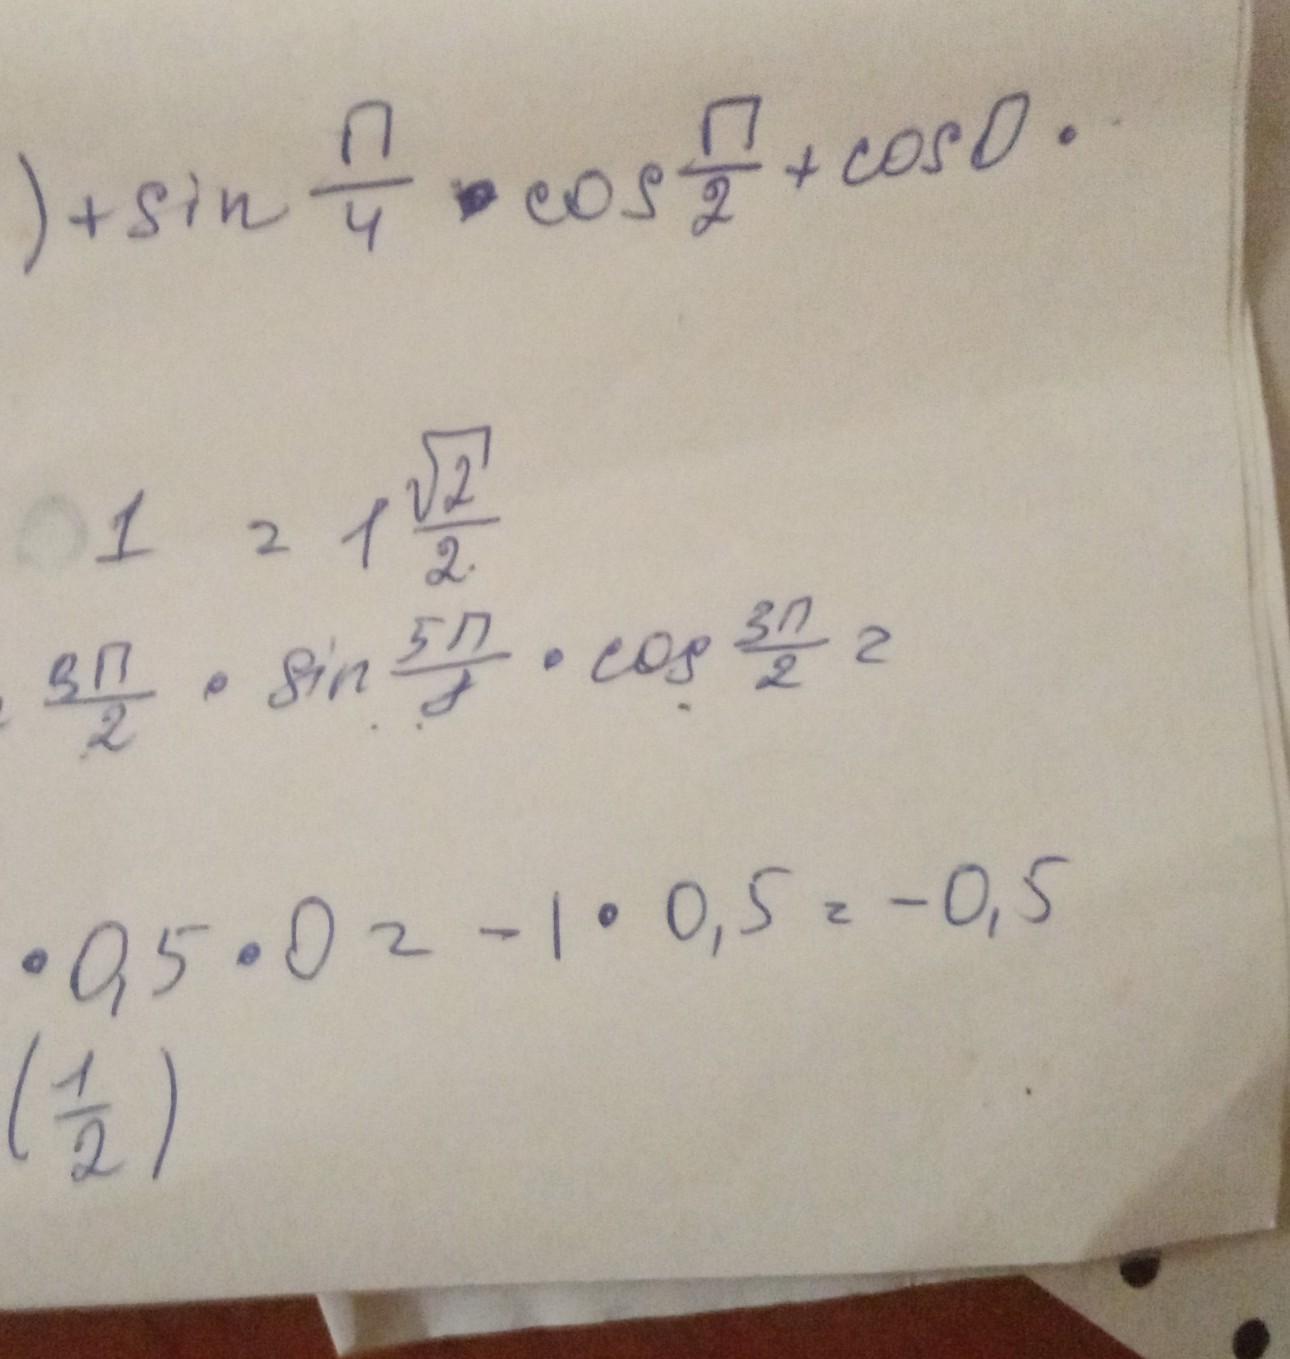 ) + sin П/4 • cos П/2 + cos 0 •
1 = 1 √2/2
3П/2 • sin 5П/ • cos 3П/2 =
• 0,5 • 0 = -1 • 0,5 = -0,5
(1/2)